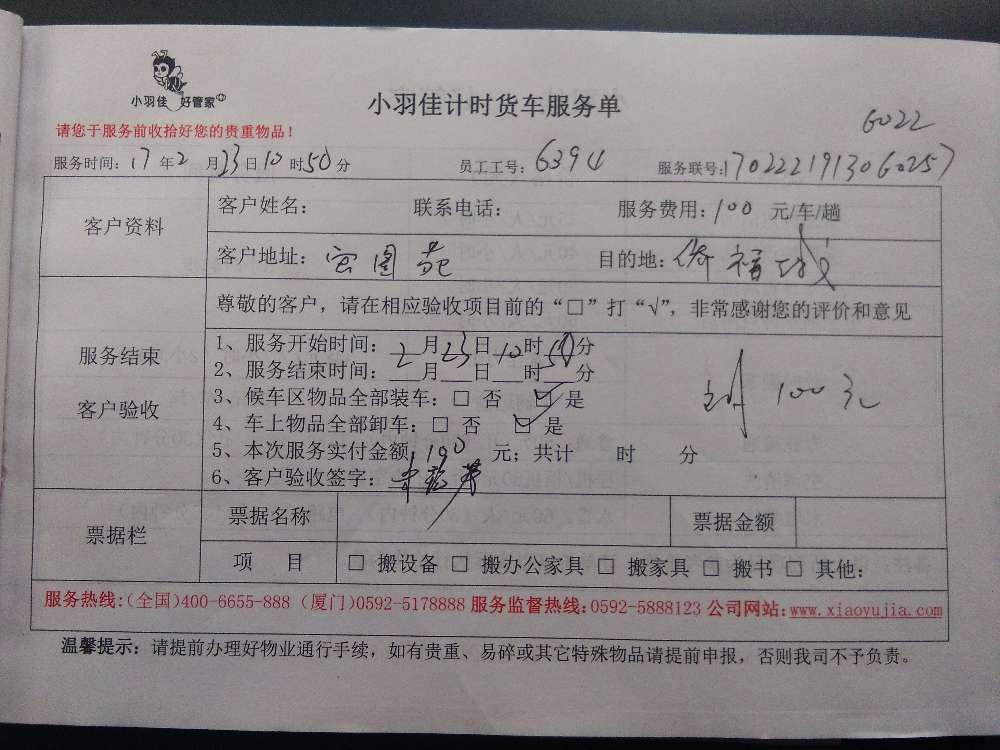 小羽佳 好管家
小羽佳计时货车服务单
6022
请您于服务前收拾好您的贵重物品！
服务时间：17年2月23日10时50分 员工工号：6394 服务联号：1702221913060257
客户资料
客户姓名： 联系电话： 服务费用：100 元/车/趟
客户地址：宏图苑 目的地：侨福城
服务结束
客户验收
尊敬的客户，请在相应验收项目前的“□”打“√”，非常感谢您的评价和意见
1、服务开始时间：2月23日10时50分
2、服务结束时间：___月___日___时___分
3、候车区物品全部装车：□ 否 ☑ 是
4、车上物品全部卸车：□ 否 ☑ 是
5、本次服务实付金额：100 元；共计 时 分
6、客户验收签字：
100元
票据栏
票据名称 票据金额
项 目 □ 搬设备 □ 搬办公家具 □ 搬家具 □ 搬书 □ 其他：
服务热线:(全国)400-6655-888 (厦门)0592-5178888 服务监督热线:0592-5888123 公司网站:www.xiaoyujia.com
温馨提示：请提前办理好物业通行手续，如有贵重、易碎或其它特殊物品请提前申报，否则我司不予负责。